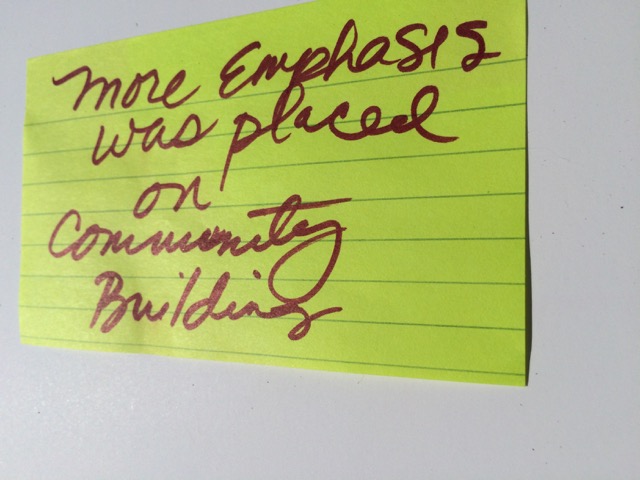 more Emphasis
was placed
on
Community
Building